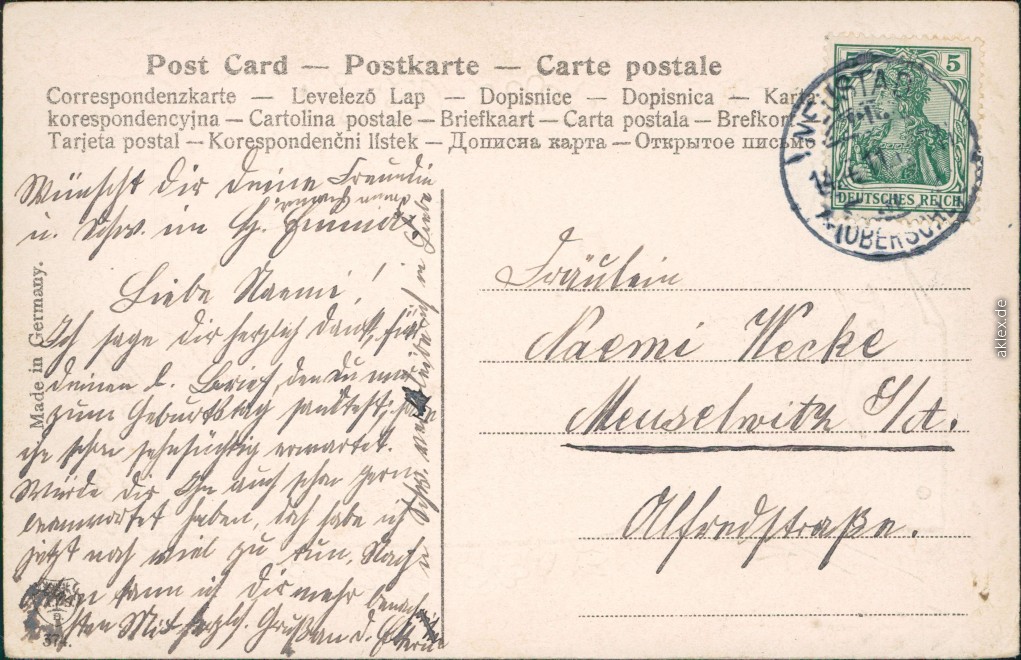 Post Card — Postkarte — Carte postale
Correspondenzkarte — Levelező Lap — Dopisnice — Dopisnica — Karta
korespondencyjna — Cartolina postale — Briefkaart — Carta postala — Brefkort
Tarjeta postal — Korespondenčni listek — Дописна карта — Открытое письмо
5
DEUTSCHES REICH
NEUSTADT
(OBERSCHL
Made in Germany.
Wünscht Dir Deine Freundin
u. Schw. im H.
Liebe Naemi!
Ich sage Dir herzlich Dank, für
deinen l. Brief, den Du mir
zum Geburtstag sandtest, habe
ihn schon sehnsüchtig erwartet.
Würde Dir Ihn auch schon gern
beantwortet haben, doch habe ich
jetzt noch viel zu tun, Nach
kann ich Dir mehr
Mit herzlich. Gruß an d. Eltern
Fräulein
Naemi Wecke
Meuselwitz S/A.
Alfredstraße.
374.
aklex.de